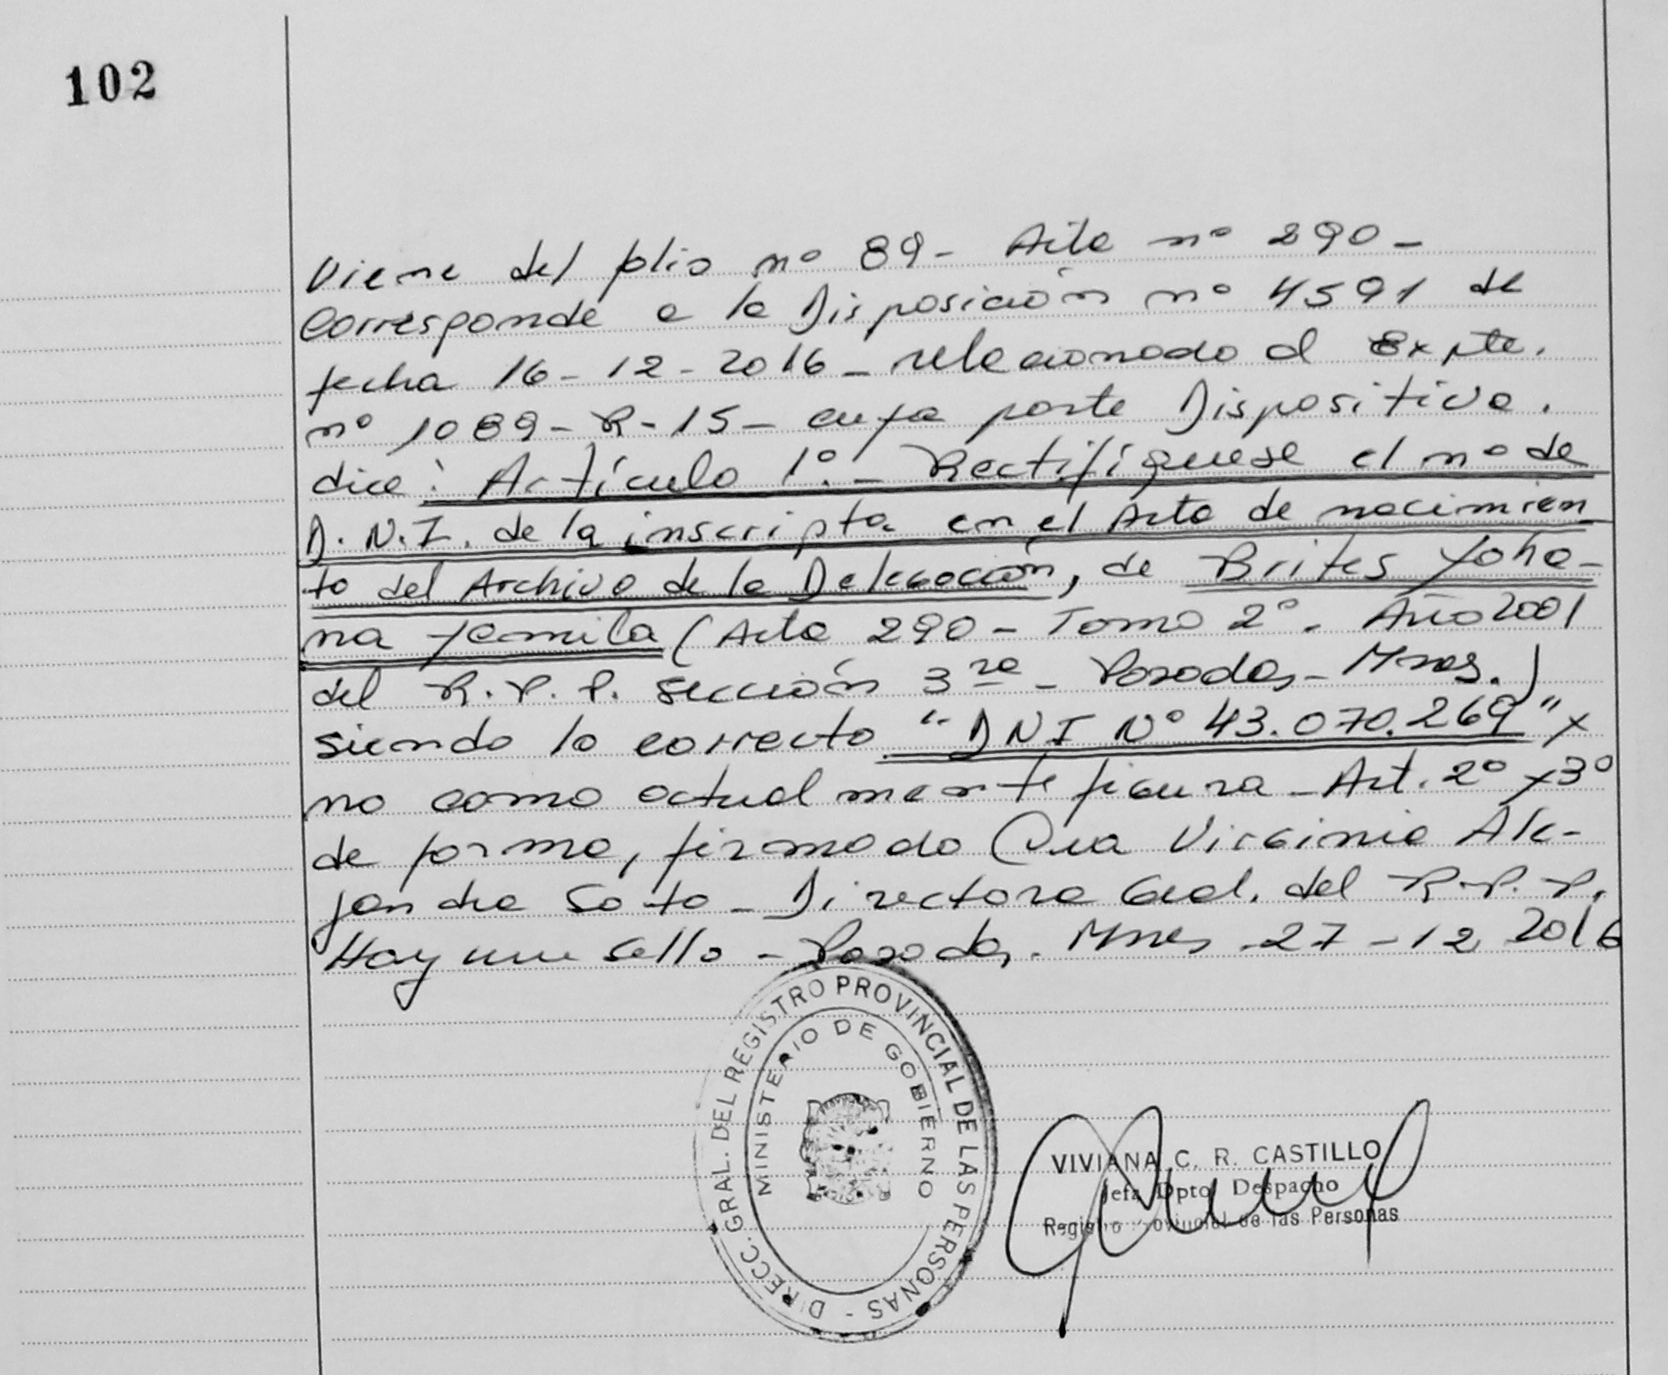 102
Viene del folio nº 89 - Acta nº 290 -
Corresponde a la Disposición nº 4591 de
fecha 16-12-2016 - relacionado al Expte.
nº 1089-R-15 - cuya parte Dispositiva.
dice: Artículo 1º.- Rectifíquese el nº de
D.N.I. de la inscripta en el Acta de nacimien
to del Archivo de la Delegación, de Brites Yoha-
na Yamila (Acta 290 - Tomo 2º. Año 2001
del R.P.P. sección 3ra - Posadas - Mnes.)
siendo lo correcto "DNI Nº 43.070.269" y
no como actualmente figura - Art. 2º y 3º
de forma, firmado Dra Virginia Ale-
jandra Soto - Directora Gral. del R.P.P.
Hay un sello - Posadas. Mnes 27-12 2016
DIRECC. GRAL. DEL REGISTRO PROVINCIAL DE LAS PERSONAS -
MINISTERIO DE GOBIERNO
VIVIANA C. R. CASTILLO
Jefa Dpto Despacho
Registro Provincial de las Personas